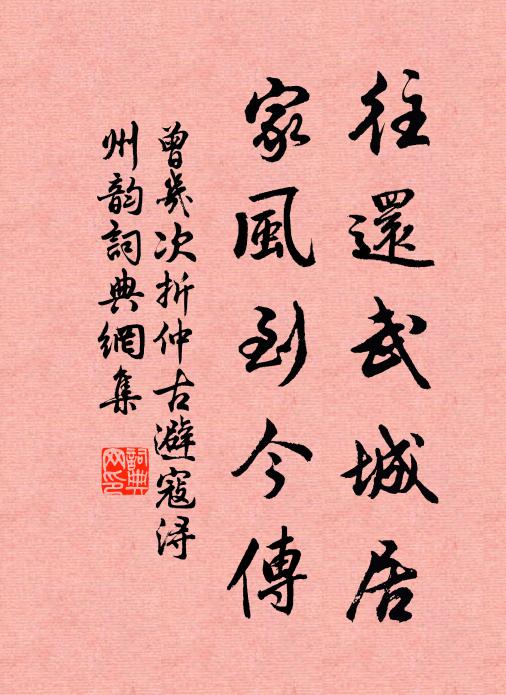 往還武城居
家風到今傳
曾幾次折仲古避寇浔
州韵詞典網集
詞典网印